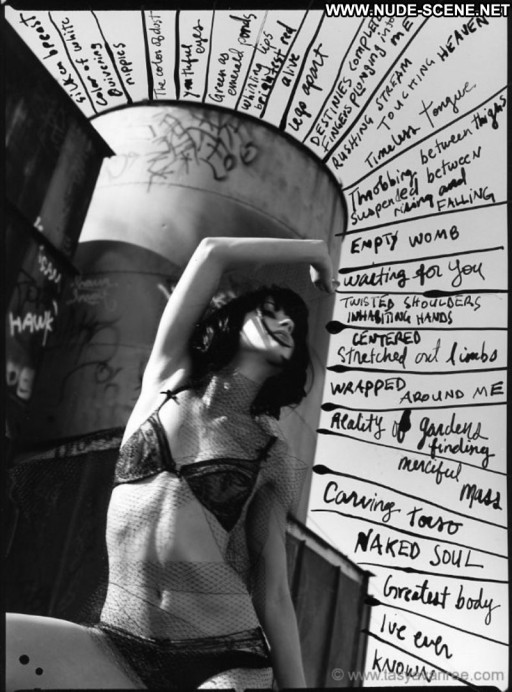 WWW.NUDE-SCENE.NET
silken breast
color of white
Quivering
nipples
The color of dust
youthful
eyes
Green as
emerald ponds
whirling lips
brightest red
alive
Legs apart
DESTINIES COMPLETE
FINGERS PLUNGING INTO ME
RUSHING STREAM
TOUCHING HEAVEN
Timeless Tongue
Throbbing between thighs
suspended between
rising and
FALLING
EMPTY WOMB
waiting for you
TWISTED SHOULDERS
INHABITING HANDS
CENTERED
Stretched out limbs
WRAPPED AROUND ME
Reality of gardens
finding
merciful
Mass
Carving torso
NAKED SOUL
Greatest body
I've ever
KNOWN
HAWK
© www.tasyavanree.com